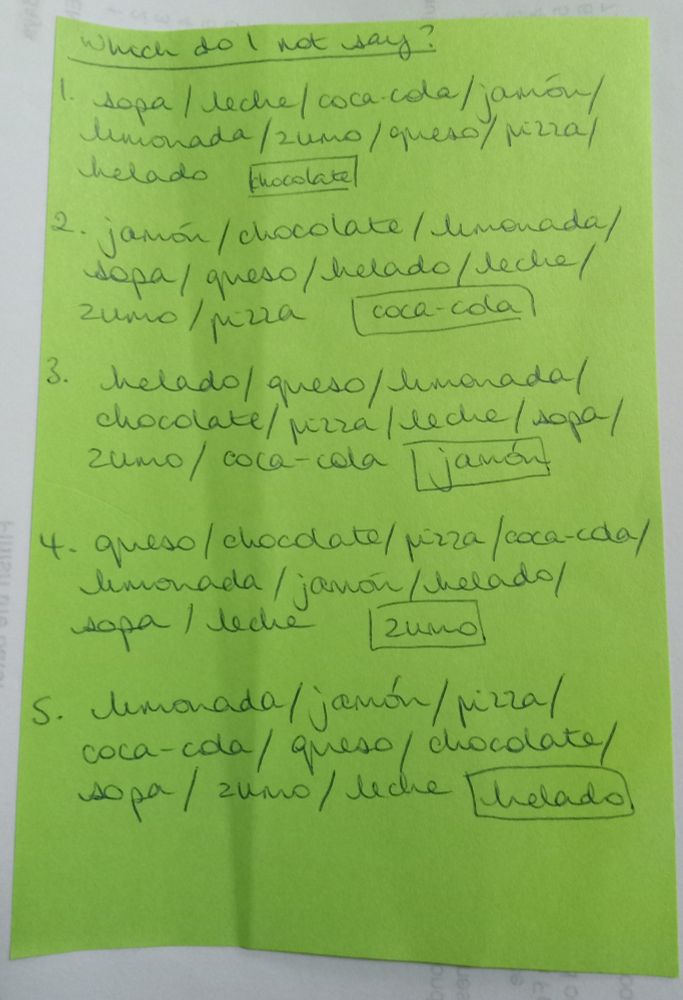 Which do I not say?
1. sopa / leche / coca-cola / jamón /
limonada / zumo / queso / pizza /
helado chocolate
2. jamón / chocolate / limonada /
sopa / queso / helado / leche /
zumo / pizza coca-cola
3. helado / queso / limonada /
chocolate / pizza / leche / sopa /
zumo / coca-cola jamón
4. queso / chocolate / pizza / coca-cola /
limonada / jamón / helado /
sopa / leche zumo
5. limonada / jamón / pizza /
coca-cola / queso / chocolate /
sopa / zumo / leche helado